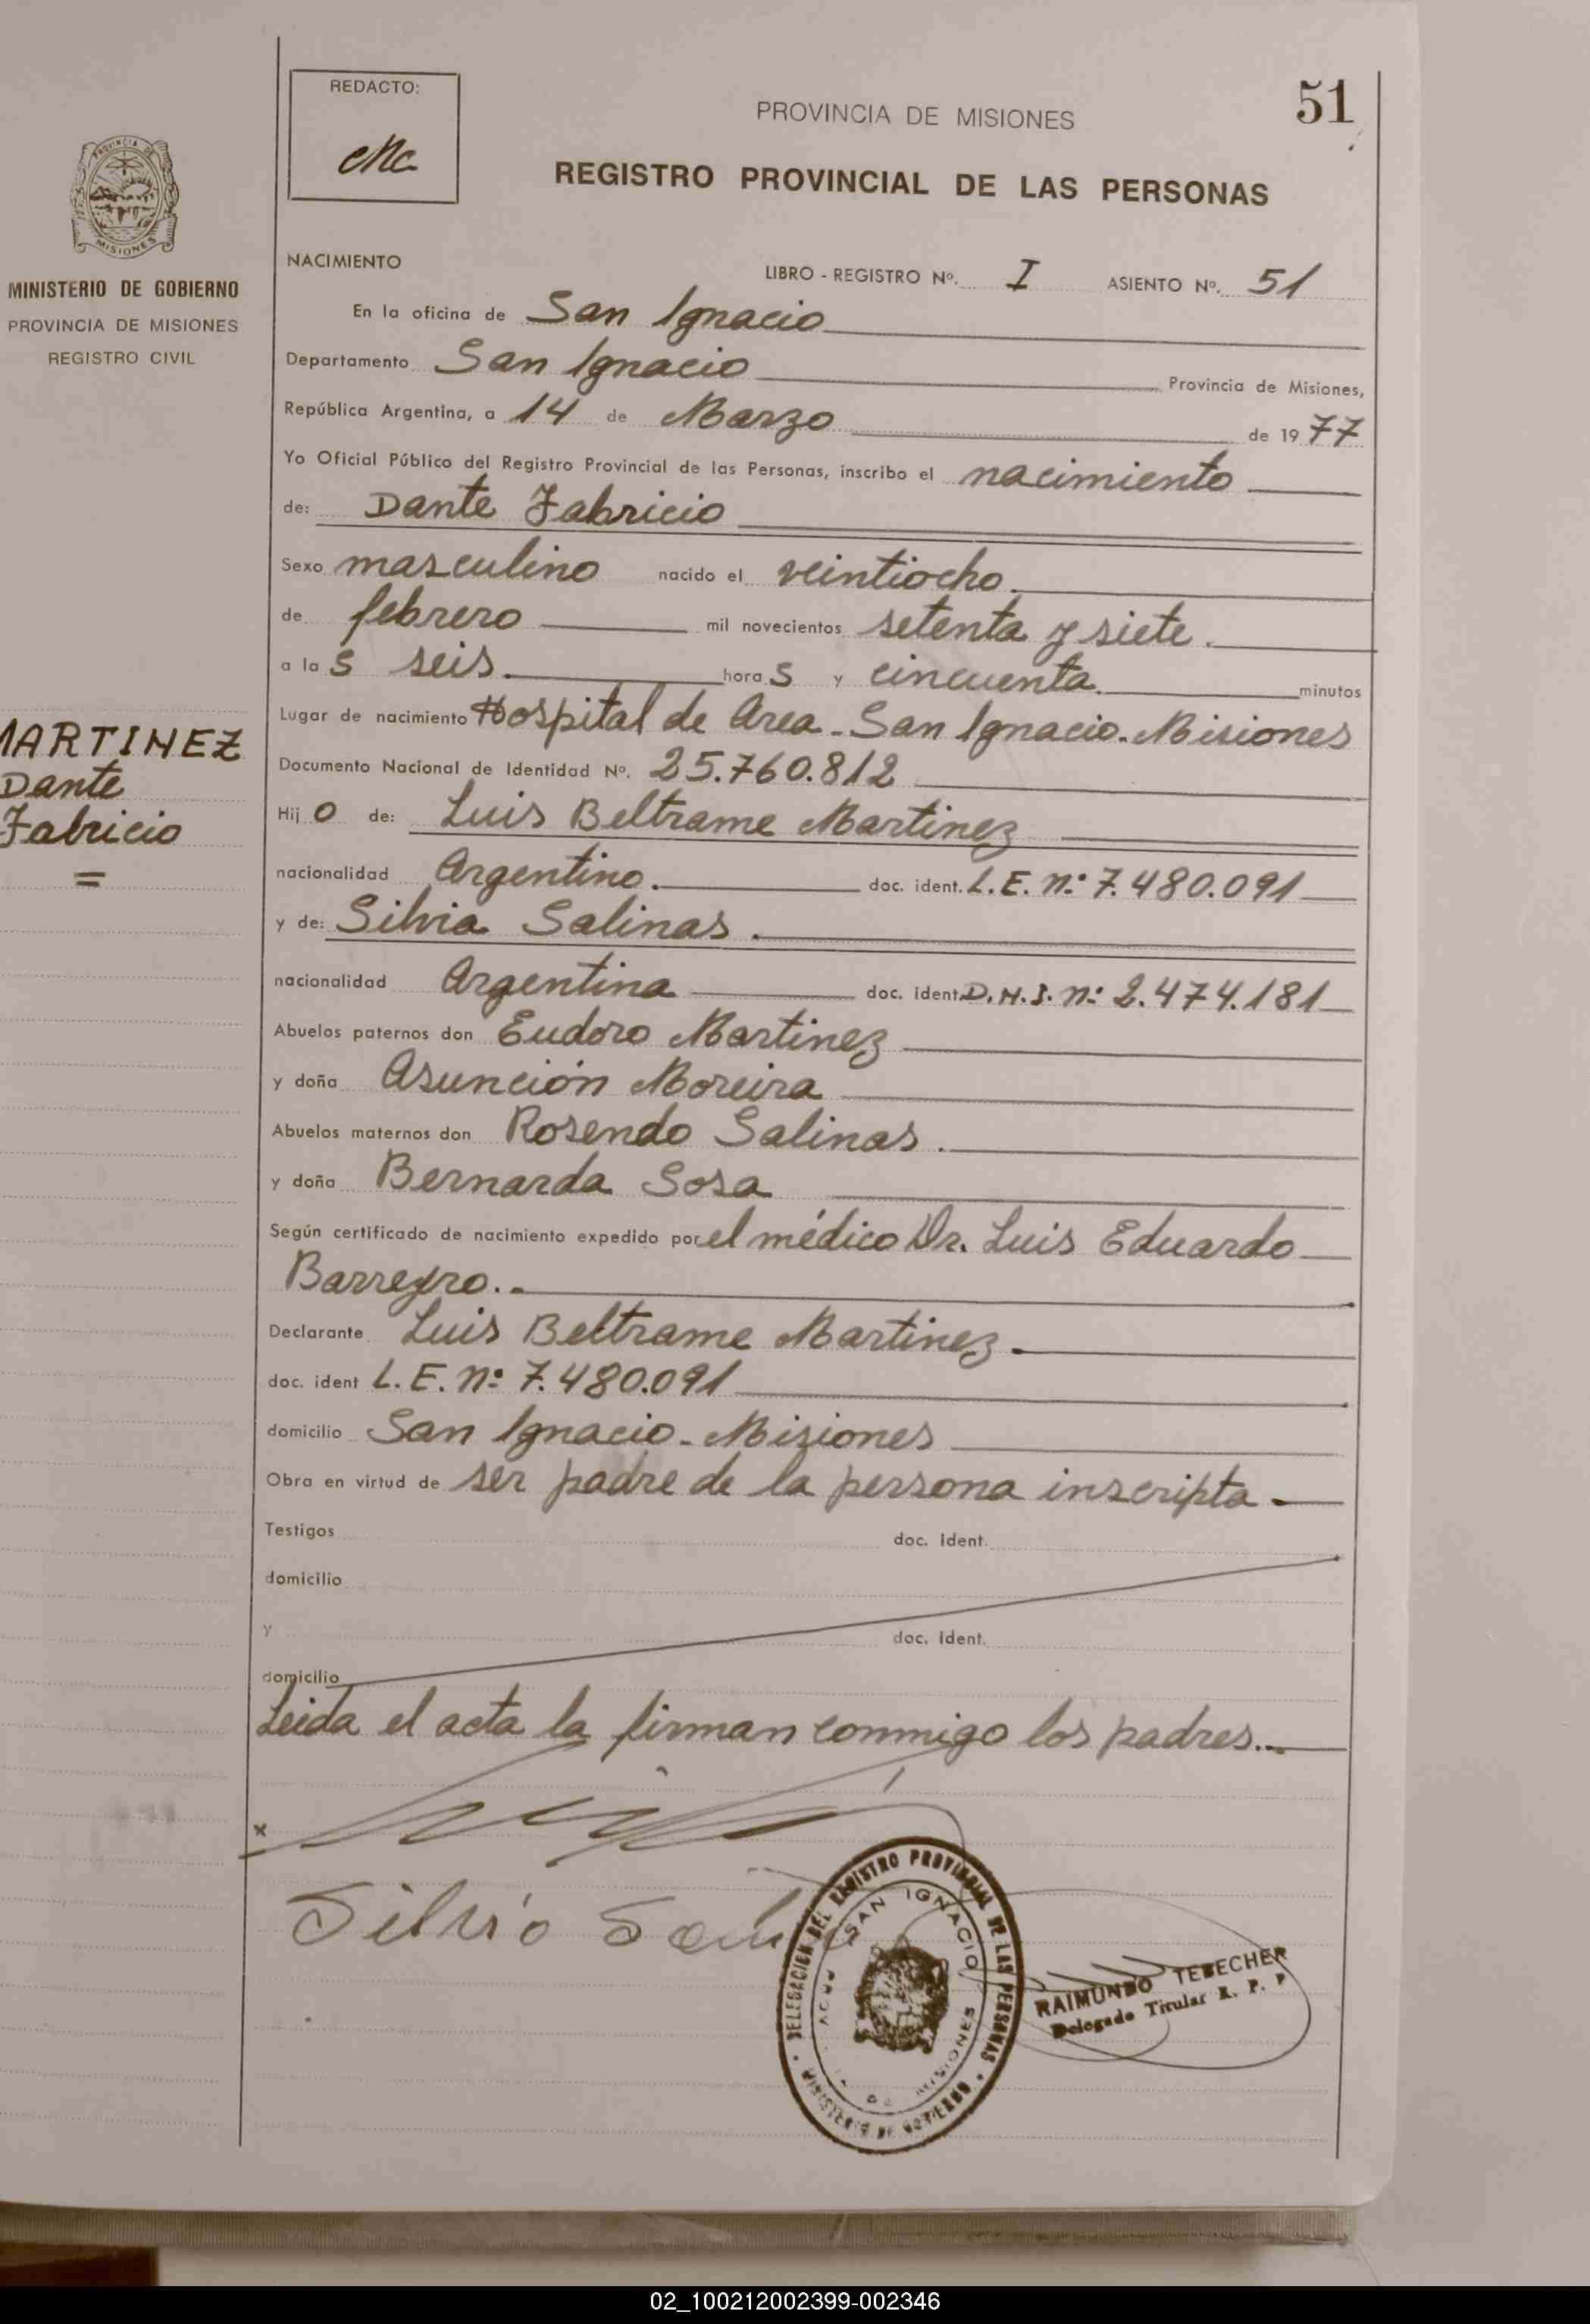 REDACTO:
51
PROVINCIA DE MISIONES
REGISTRO PROVINCIAL DE LAS PERSONAS
PROVINCIA DE
MISIONES
MINISTERIO DE GOBIERNO
PROVINCIA DE MISIONES
REGISTRO CIVIL
NACIMIENTO LIBRO - REGISTRO Nº. I ASIENTO Nº. 51
En la oficina de San Ignacio
Departamento San Ignacio Provincia de Misiones,
República Argentina, a 14 de Marzo de 1977
Yo Oficial Público del Registro Provincial de las Personas, inscribo el nacimiento
de: Dante Fabricio
Sexo masculino nacido el veintiocho
de febrero mil novecientos setenta y siete.
a las seis. horas y cincuenta. minutos
Lugar de nacimiento Hospital de Area - San Ignacio. Misiones
MARTINEZ
Dante
Fabricio
=
Documento Nacional de Identidad Nº. 25.760.812
Hijo de: Luis Beltrame Martinez
nacionalidad Argentino. doc. ident. L.E. nº 7.480.091
y de: Silvia Salinas.
nacionalidad Argentina doc. ident. D.N.I. nº 2.474.181
Abuelos paternos don Eudoro Martinez
y doña Asunción Moreira
Abuelos maternos don Rosendo Salinas.
y doña Bernarda Sosa
Según certificado de nacimiento expedido por el médico Dr. Luis Eduardo
Barreyro.-
Declarante Luis Beltrame Martinez.
doc. ident L.E. nº 7.480.091
domicilio San Ignacio - Misiones
Obra en virtud de ser padre de la persona inscripta.
Testigos doc. ident.
domicilio
y doc. ident.
domicilio
Leida el acta la firman conmigo los padres..
x
DELEGACION DEL REGISTRO PROVINCIAL DE LAS PERSONAS
SAN IGNACIO
MISIONES
MINISTERIO DE GOBIERNO
RAIMUNDO TEBECHER
Delegado Titular R. P. P
02_100212002399-002346